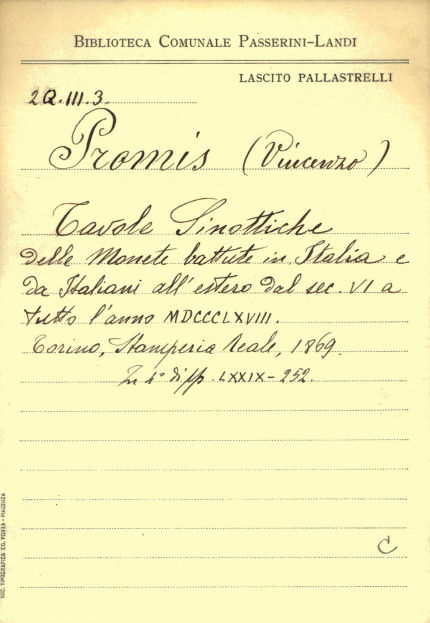 BIBLIOTECA COMUNALE PASSERINI-LANDI
LASCITO PALLASTRELLI
2Q.III.3.
Promis (Vincenzo)
Tavole Sinottiche
delle Monete battute in Italia e
da Italiani all'estero dal sec. VI a
tutto l'anno MDCCCLXVIII.
Torino, Stamperia Reale, 1869.
In 4° di pp. LXXIX-252.
C
SOC. TIPOGRAFICA ED. PORTA - PIACENZA